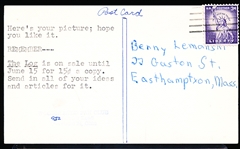 Post Card
Here's your picture; hope
you like it.
REMEMBER---
The Log is on sale until
June 15 for 15¢ a copy.
Send in all of your ideas
and articles for it.
Benny Lemanski
22 Gaston St.
Easthampton, Mass.
LIBERTY